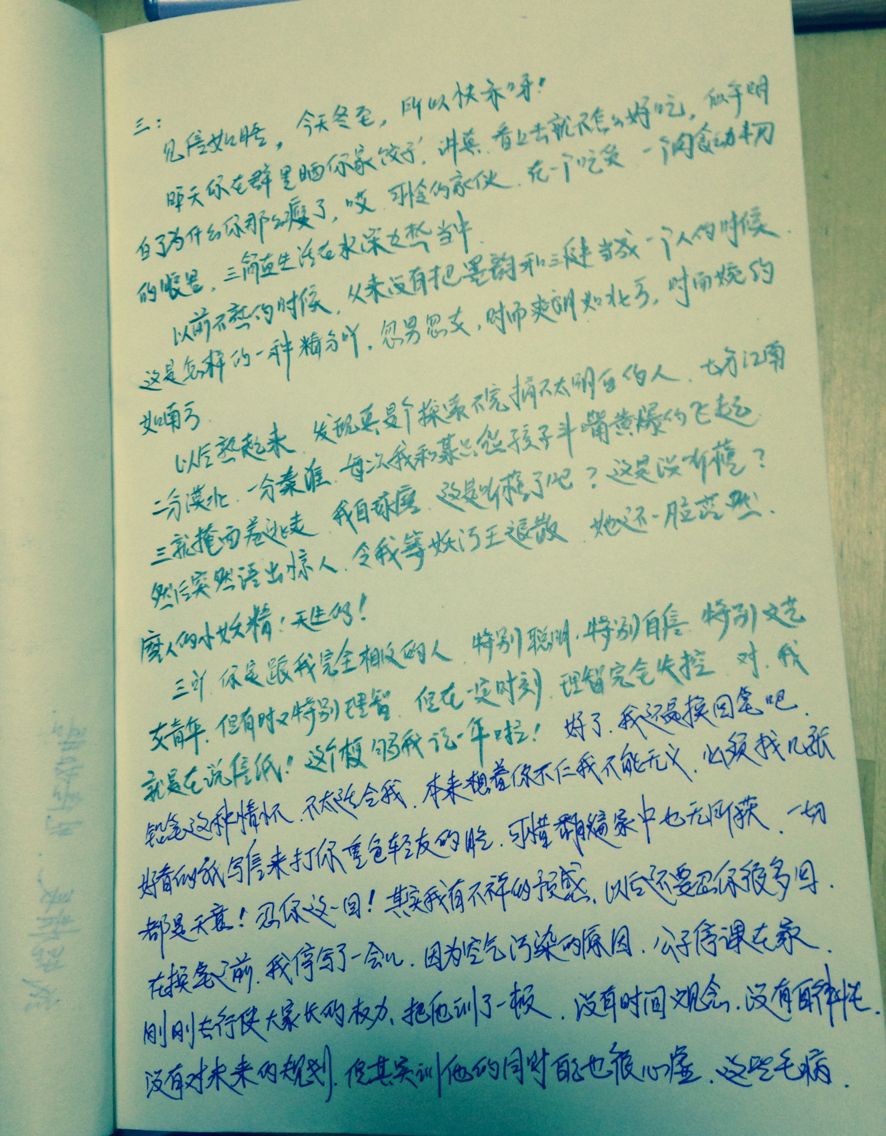 三：
见信如晤，今天冬至，所以快乐呀！
昨天你在群里晒你家饺子，讲真，看上去就不怎么好吃，似乎明
白了为什么你那么瘦了，哎，可怜的家伙，在一个吃货、一个肉食动物
的眼里，三简直生活在水深火热当中。
以前不熟的时候，从来没有把墨韵和三 当成一个人的时候，
这是怎样的一种精分吖，忽男忽女，时而爽朗如北方，时而婉约
如南方。
以后熟起来，发现真是个探索不完搞不太明白的人，七分江南
二分漠北，一分秦淮，每次我和某只熊孩子斗嘴黄爆的飞起
三就掩面羞 走，我自琢磨，这是听懂了吧？这是没听懂？
然后突然语出惊人，令我等妖污王退散，她还一脸茫然，
磨人的小妖精！天生的！
三吖，你是跟我完全相反的人，特别聪明，特别自信，特别文艺
女青年，但有时又特别理智，但在一定时刻，理智完全失控，对，我
就是在说信纸！这个梗够我记一年啦！好了，我还是换回笔吧，
铅笔这种情怀，不太适合我，本来想着你不仁我不能无义，必须找几张
好看的纸写信来打你重色轻友的脸，可惜翻遍家中也无所获，一切
都是天意！忍你这一回！其实我有不祥的预感，以后还要忍你很多回，
在换笔之前，我停写了一会儿，因为空气污染的原因，公子停课在家，
刚刚去行使大家长的权力，把他训了一顿，没有时间观念，没有自律性，
没有对未来的规划，但其实训他的同时自己也很心虚，这些毛病，